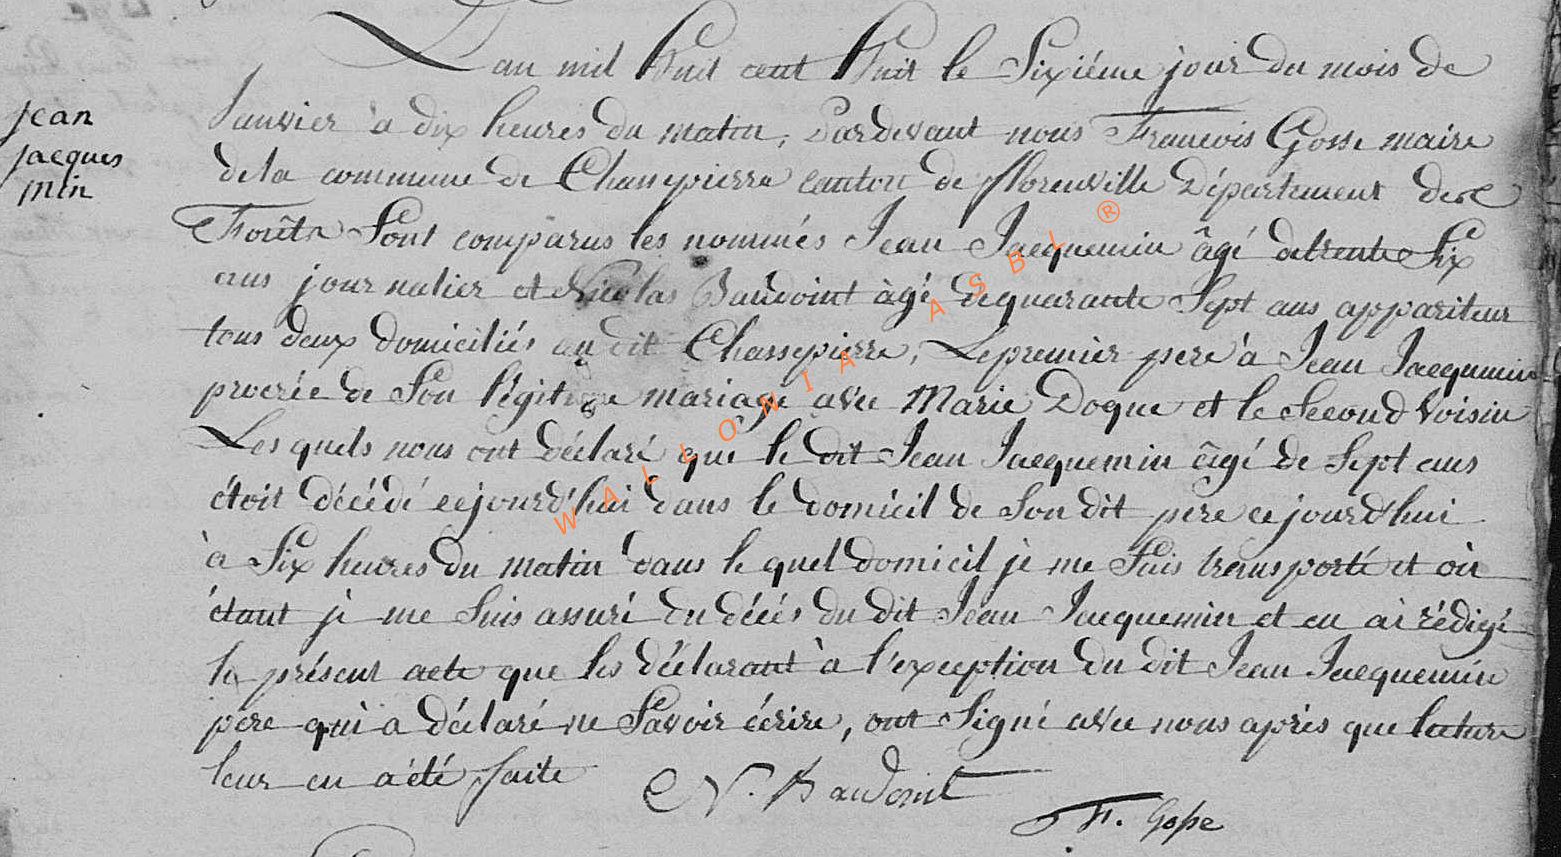 jean
jacques
min
Lan mil huit cent huit le Sixiéme jour du mois de
Janvier à dix heures du matin, Pardevant nous Francois Gosse maire
dela commune de Chassepierre canton de florenville Département des
Forêts Sont comparus les nommés Jean Jacquemin âgé detrente Six
ans journalier et Nicolas Baudoint àgé dequarante Sept ans appariteur
tous deux domiciliés au dit Chassepierre, Lepremier pere à Jean Jacquemin
procrée de Son légitime mariage avec Marie Doque et le Second Voisin
Les quels nous ont déclaré que le dit Jean Jacquemin âgé de Sept ans
étoit décédé cejourd'hui dans le domicil de Son dit pere cejourd'hui
à Six heures du matin dans le quel domicil je me Suis transporté et où
étant je me Suis assuré du décés du dit Jean Jacquemin et en ai rédigé
le présent acte que les déclarant à l'exception du dit Jean Jacquemin
pere qui a déclaré ne Savoir écrire, ont Signé avec nous après que lecture
leur en a été faite
N. Baudoint
F. Gosse
WALLONIA ASBL ®